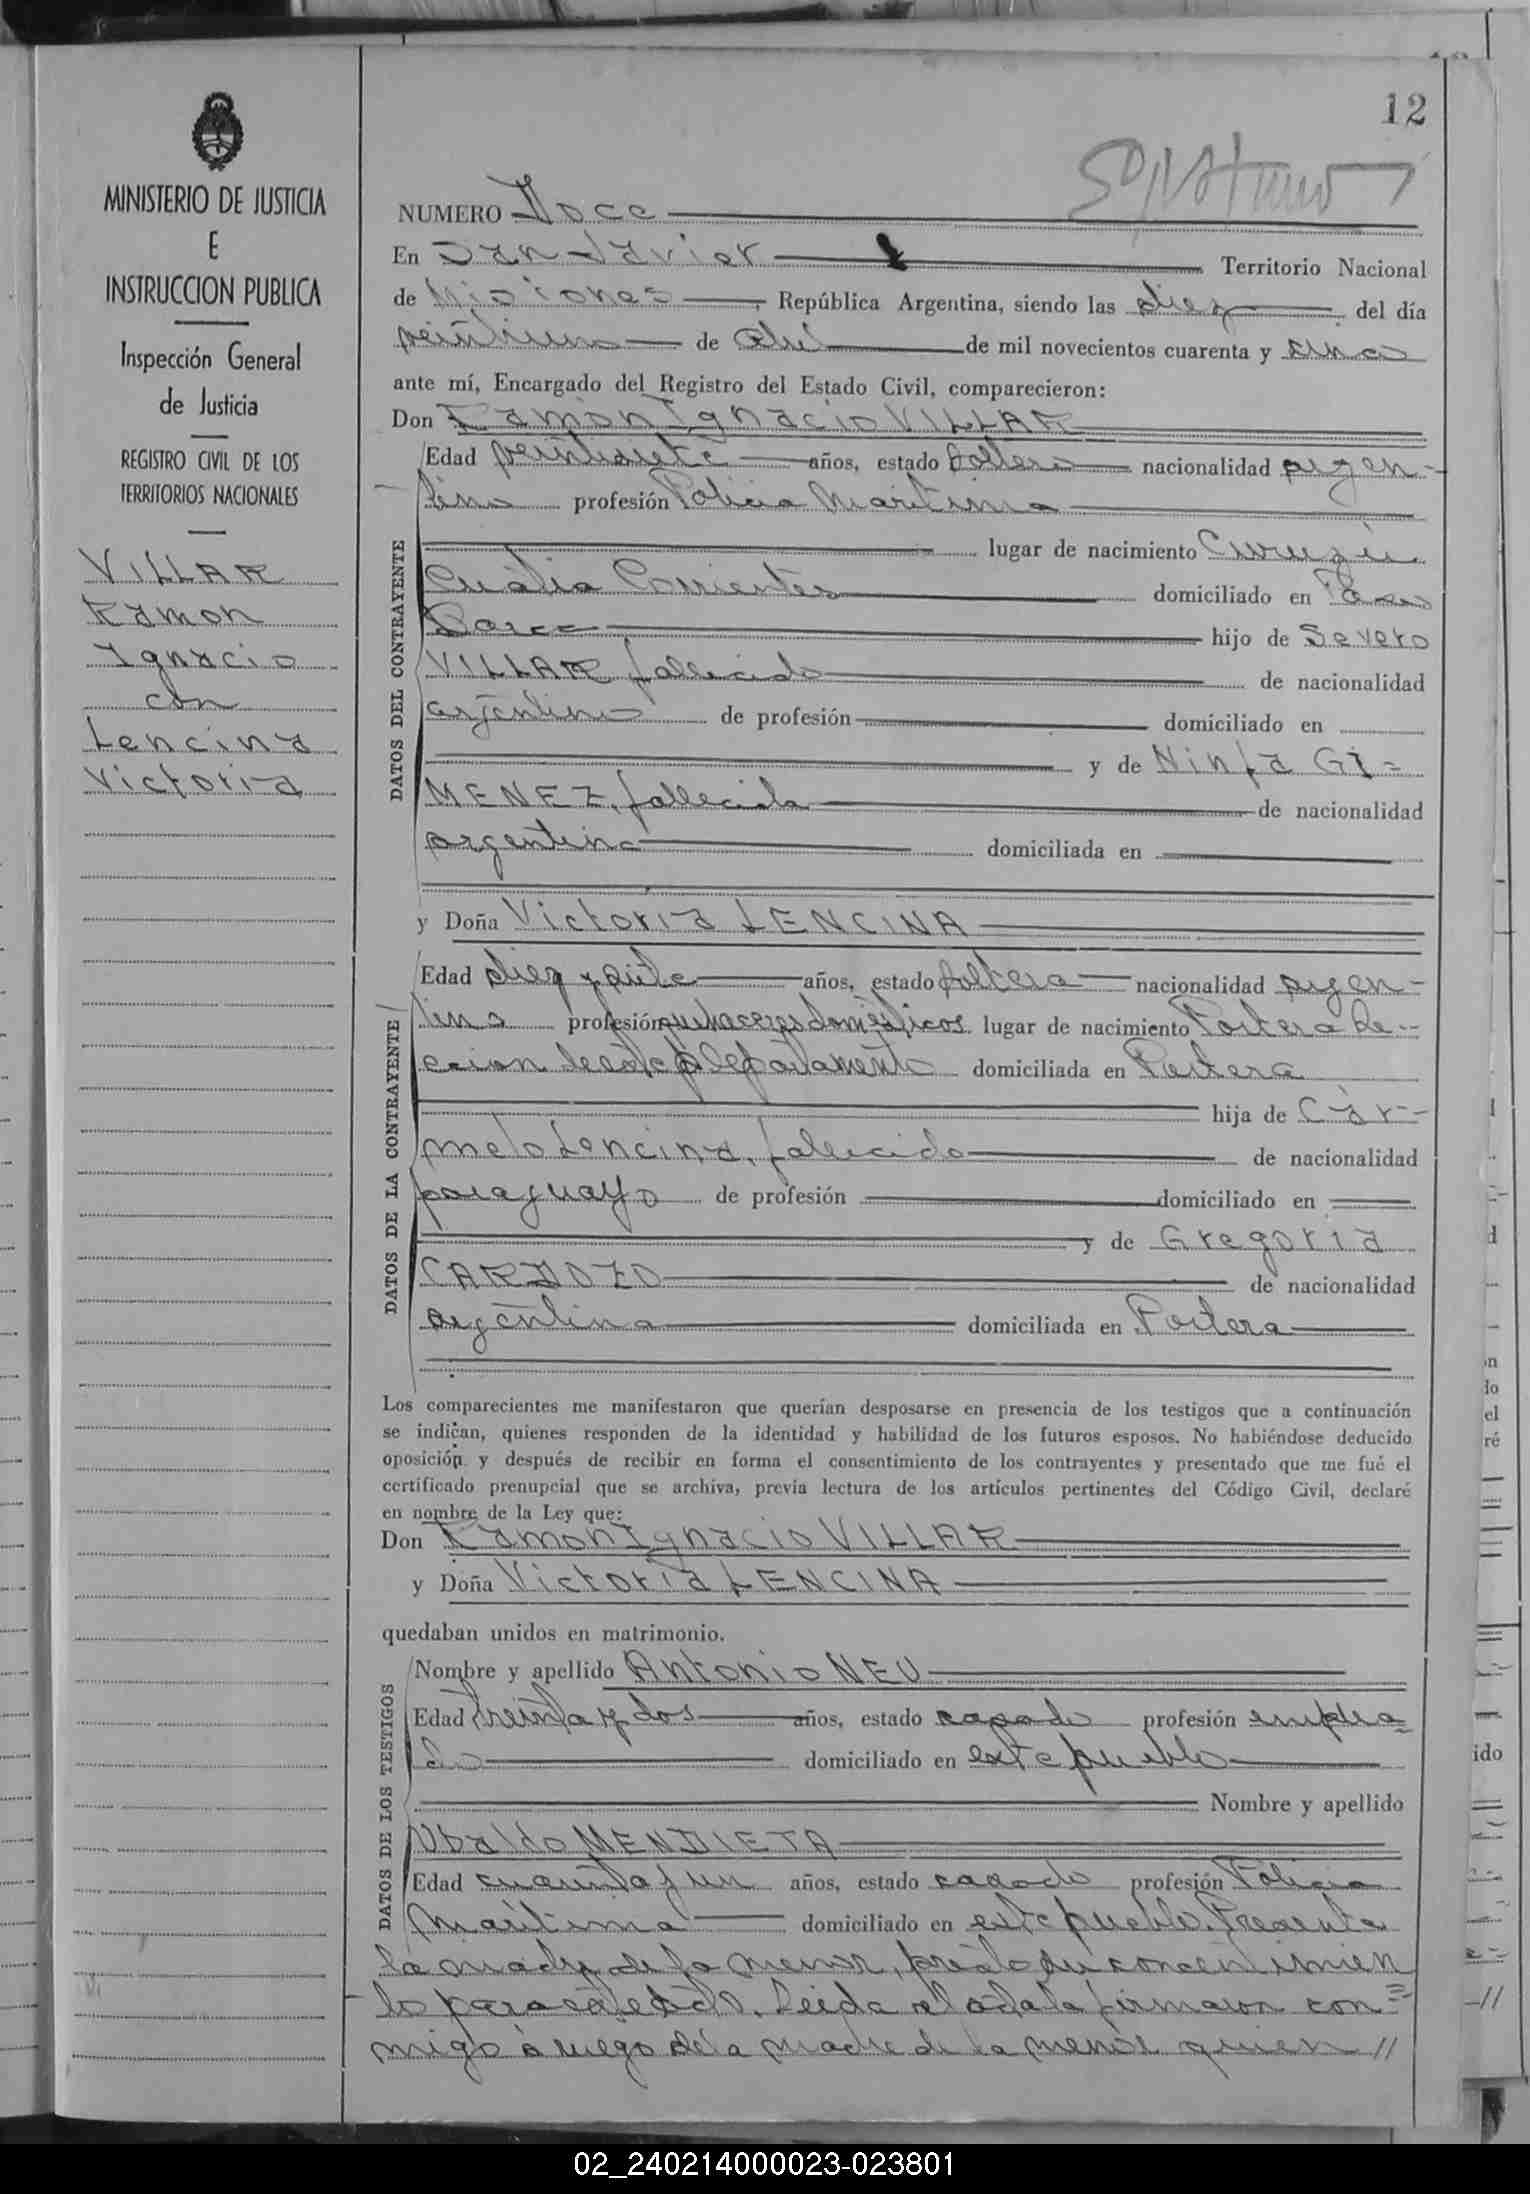 12
MINISTERIO DE JUSTICIA
E
INSTRUCCION PUBLICA
Inspección General
de Justicia
REGISTRO CIVIL DE LOS
TERRITORIOS NACIONALES
VILLAR
Ramon
Ignacio
con
Lencina
Victoria
NUMERO Doce
En San Javier Territorio Nacional
de Misiones, República Argentina, siendo las diez del día
veintiuno de Abril de mil novecientos cuarenta y cinco
ante mí, Encargado del Registro del Estado Civil, comparecieron:
Don Ramon Ignacio VILLAR
DATOS DEL CONTRAYENTE
Edad veintisiete años, estado soltero nacionalidad argen-
tino profesión Policia Maritima
lugar de nacimiento Curuzú
Cuatia Corrientes domiciliado en Paso
hijo de Severo
VILLAR fallecido de nacionalidad
argentino de profesión domiciliado en
y de Ninfa GI=
MENEZ, fallecida de nacionalidad
argentina domiciliada en
y Doña Victoria LENCINA
DATOS DE LA CONTRAYENTE
Edad diez y siete años, estado soltera nacionalidad argen-
tina profesión quehaceres domésticos lugar de nacimiento Portera Se-
ccion de este departamento domiciliada en Portera
hija de Car-
melo Lencina, fallecido de nacionalidad
paraguayo de profesión domiciliado en
y de Gregoria
CARDOZO de nacionalidad
argentina domiciliada en Portera
Los comparecientes me manifestaron que querían desposarse en presencia de los testigos que a continuación
se indican, quienes responden de la identidad y habilidad de los futuros esposos. No habiéndose deducido
oposición y después de recibir en forma el consentimiento de los contrayentes y presentado que me fué el
certificado prenupcial que se archiva, previa lectura de los artículos pertinentes del Código Civil, declaré
en nombre de la Ley que:
Don Ramon Ignacio VILLAR
y Doña Victoria LENCINA
quedaban unidos en matrimonio.
DATOS DE LOS TESTIGOS
Nombre y apellido Antonio NEU
Edad treinta y dos años, estado casado profesión emplea=
do domiciliado en este pueblo
Nombre y apellido
Ubaldo MENDIETA
Edad cuarenta y un años, estado casado profesión Policia
Maritima domiciliado en este pueblo. Presente
la madre de la menor, presto su consentimien
to para este acto. Leida el acta la firmaron con=
migo a ruego de la madre de la menor quien //
02_240214000023-023801